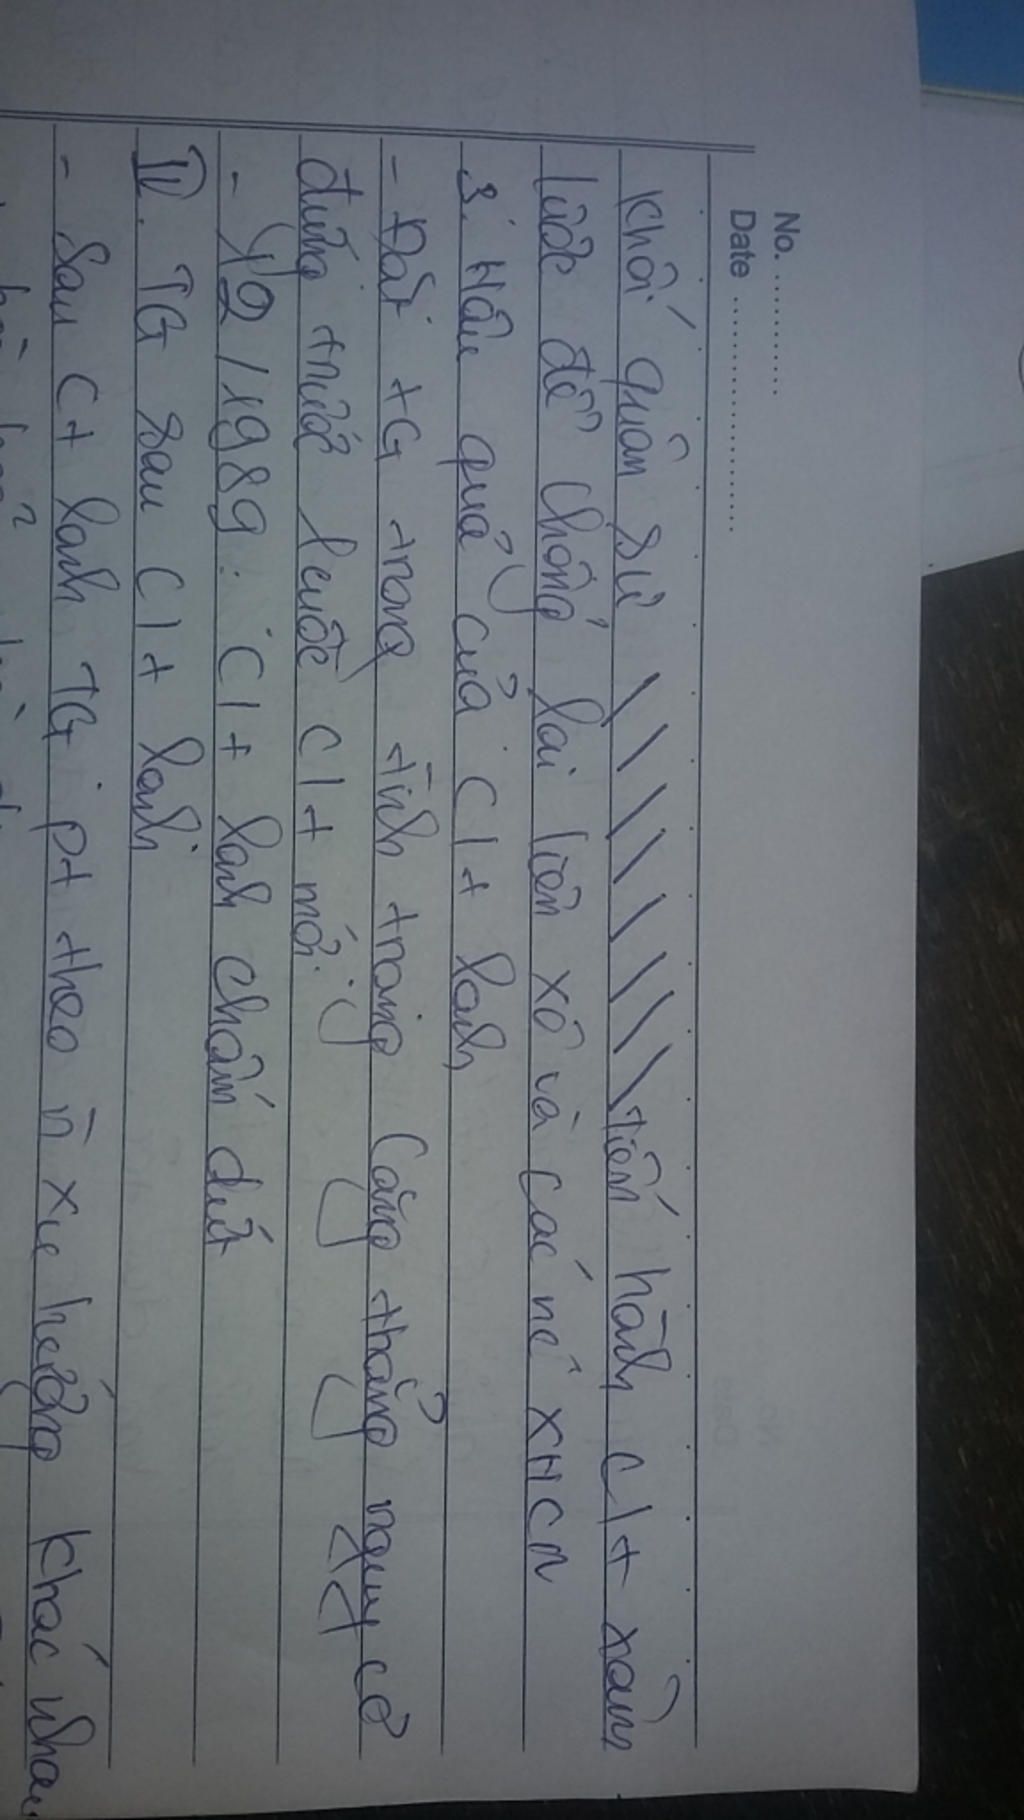 No. ............
Date ......................
khối quân sự \ \ \ \ \ \ \ \ tiến hành c/t xâm
lược để chống lại liên xô và các nc XHCN
3. Hậu quả của c/t lạnh
- Đặt TG trong tình trạng căng thẳng nguy cơ
đứng trước cuộc c/t mới
- 12/1989: c/t lạnh chấm dứt
IV. TG sau c/t lạnh
- Sau ct lạnh TG pt theo n̄ xu hướng khác nhau